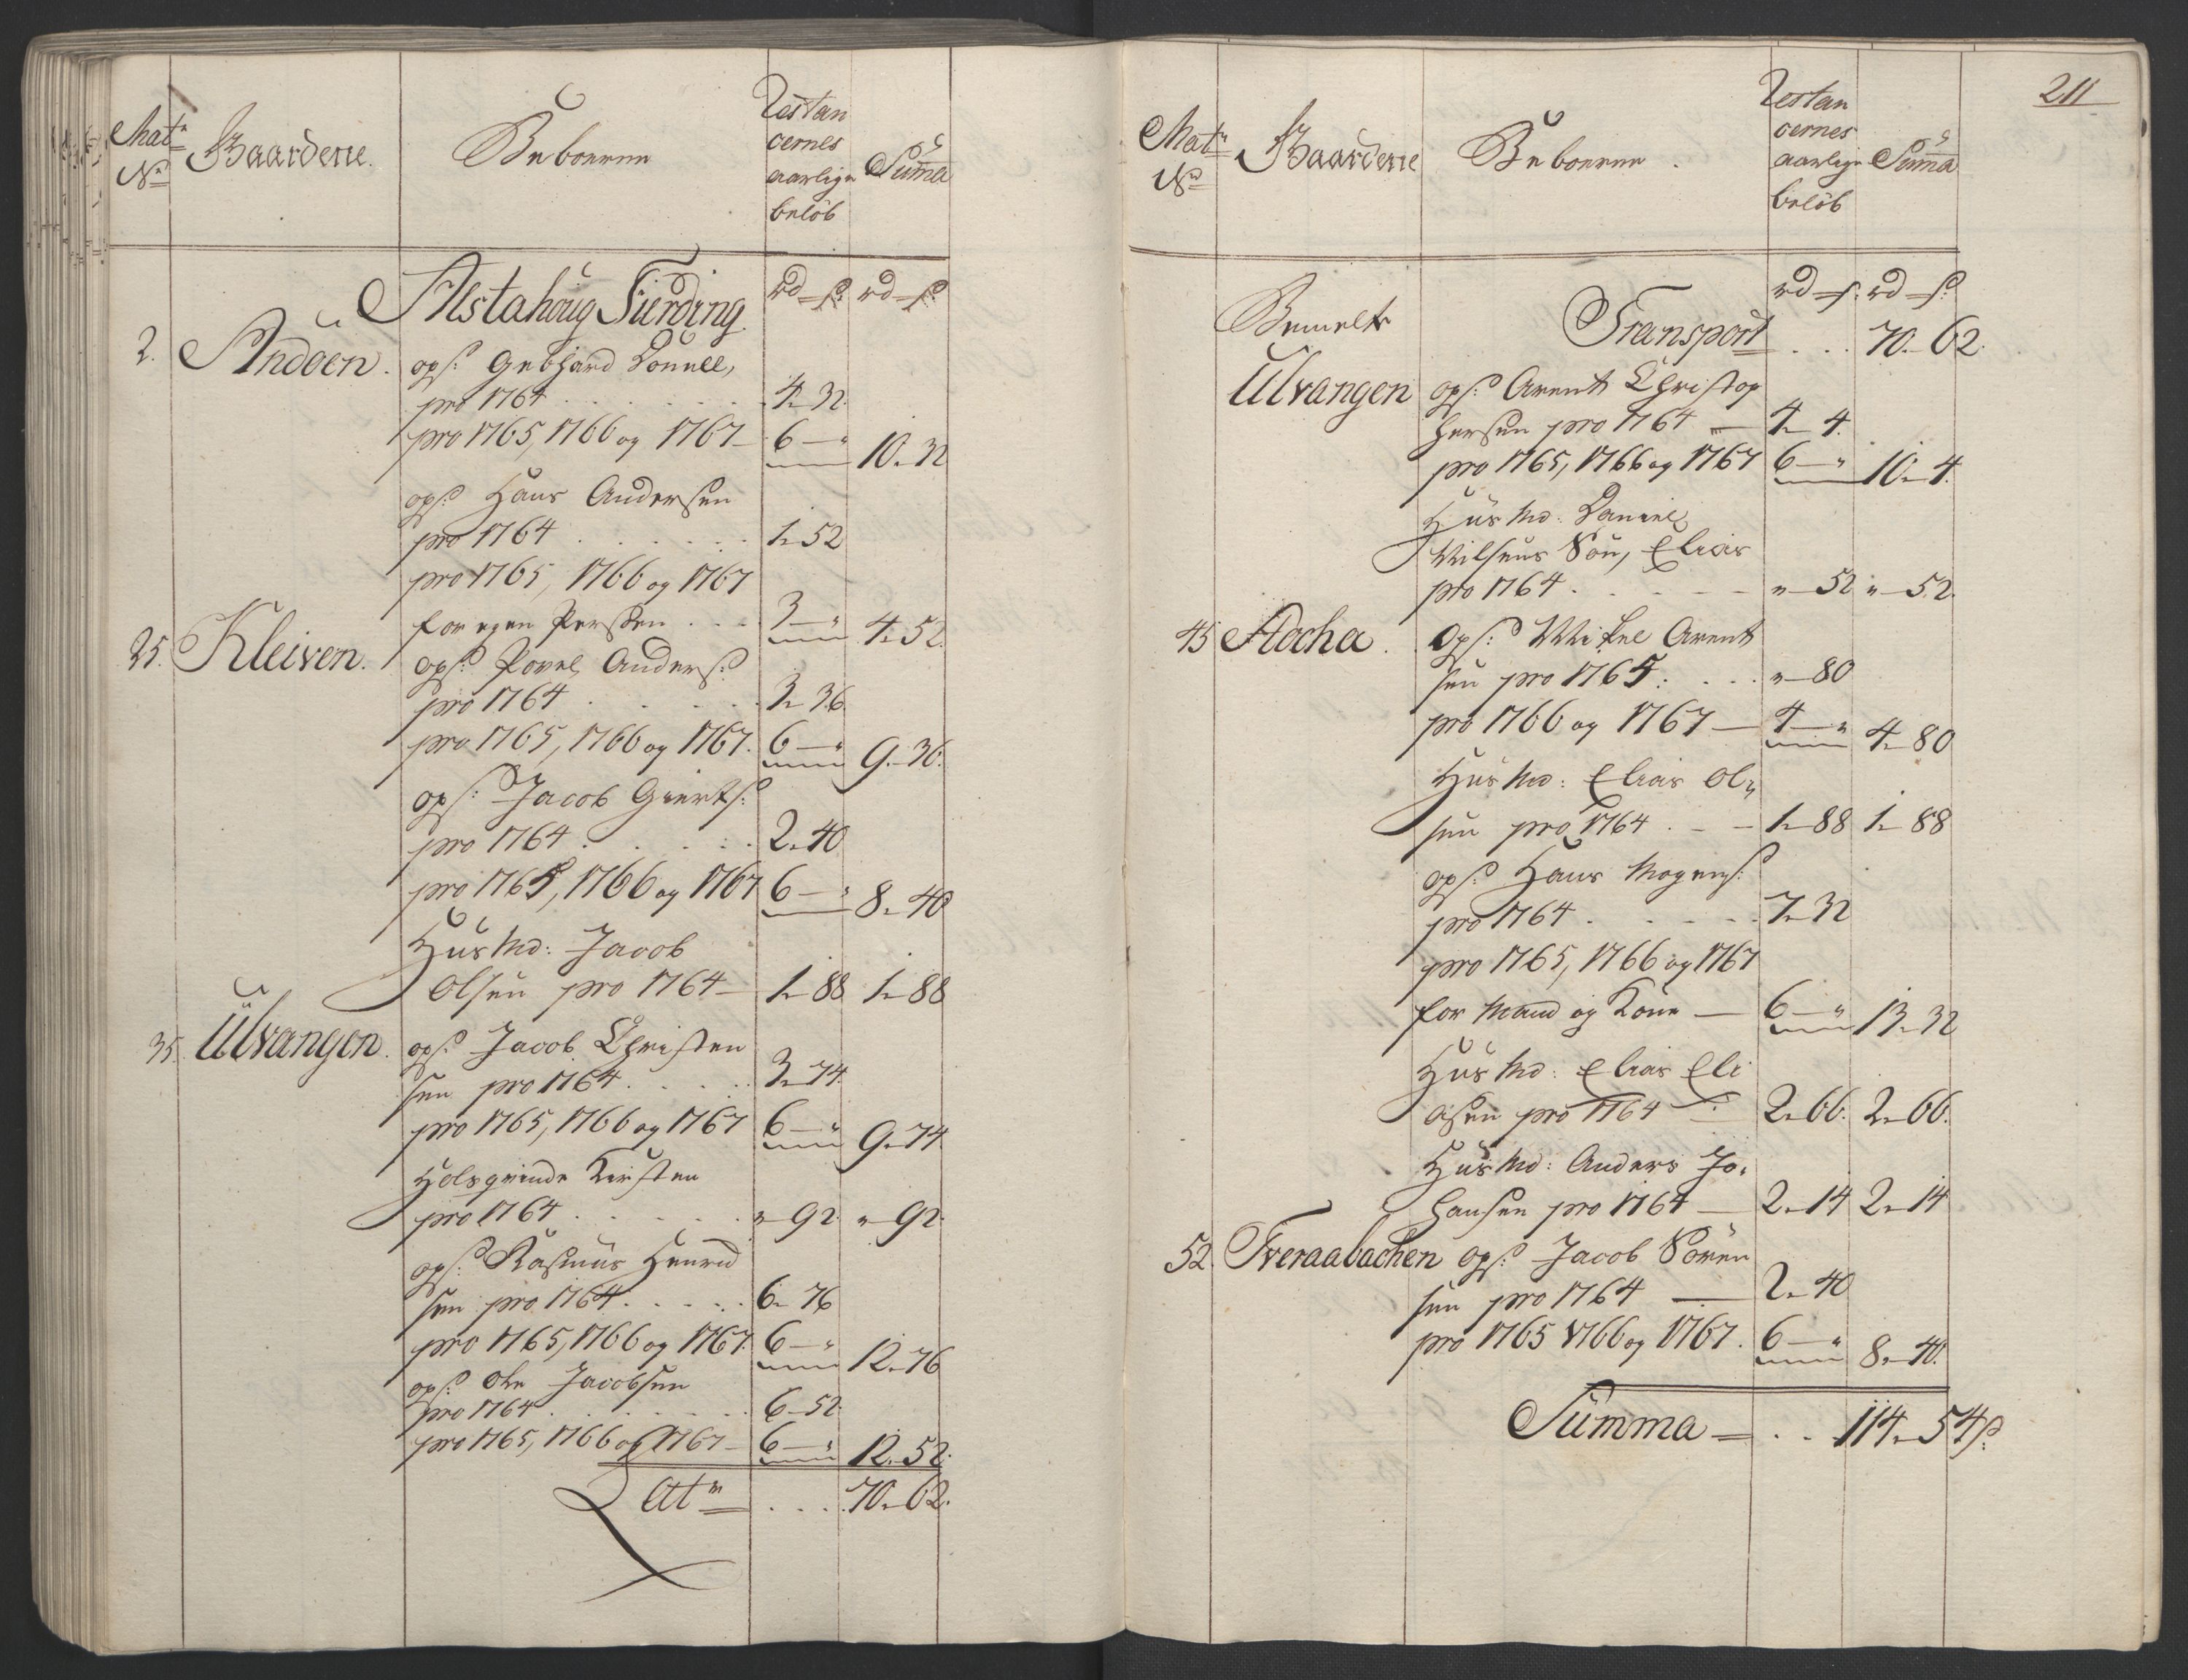 Matr
No
Gaardene.
Beboerne
Restan
cernes
aarlige
beløb
Summa
Alstahoug Fierding
rd – s: rd – s:
2. Andöen.
ops: Gebhard Donell,
pro 1764 . . . . . 4 – 32.
pro 1765, 1766 og 1767 – 6 – " 10. 32
ops: Hans Andersen
pro 1764 . . . . . 1 – 52
pro 1765, 1766 og 1767
for egen Persoen . . . 3 – " 4. 52.
25. Kleiven.
ops: Povel Anders:
pro 1764 . . . . . 3 – 36
pro 1765, 1766 og 1767. 6 – " 9. – 36.
ops: Jacob Gierts:
pro 1764 . . . . . 2. 40
pro 1765, 1766 og 1767 6 – " 8. – 40
Huusmd: Jacob
Olsen pro 1764 – 1 – 88 1 – 88
35. Ulvangen.
ops: Jacob Christen
sen pro 1764 . . . . 3 – 74
pro 1765, 1766 og 1767 6 – " 9. 74.
Holsqvinde Kirsten
pro 1764 . . . . . " – 92 " – 92.
ops: Rasmus Henrid
sen pro 1764. . . . . 6 – 76
pro 1765, 1766 og 1767. 6 – " 12. – 76
ops: Ole Jacobsen
pro 1764 . . . . . 6 – 52.
pro 1765, 1766 og 1767 – 6 – " 12. 52.
Latr . . . . 70. – 62.
211
Matr
No
Gaardene
Beboerne.
Restan
cernes
aarlige
beløb
Summa
rd – s: rd – s:
Bemelte
Transport . . . 70. – 62.
Ulvangen
ops: Arent Christop
hersen pro 1764 – 4 – 4.
pro 1765, 1766 og 1767 6 – " 10. – 4.
Huusmd: Daniel
Nilsens Søn, Elias
pro 1764. . . – – " – 52 " – 52.
45 Hocha.
Ops: Mikel Arent
sen pro 1765: . . . " – 80
pro 1766 og 1767 – 4 – " 4 – 80
Huusmd: Elias Ol„
sen pro 1764 . – – 1 – 88 1 – 88
ops: Hans Mogens:
pro 1764. . . . . 7 – 32
pro 1765, 1766 og 1767
for Mand og Kone – 6 – " 13. – 32
Huusmd: Elias Eli
asen pro 1764 – 2. 66. 2. – 66.
Huusmd: Anders Jo„
hansen pro 1764 – 2. 14 2. – 14
52. Tveraabachen
ops: Jacob Sören
sen pro 1764 – 2. – 40
pro 1765 1766 og 1767. 6 – " 8. – 40.
Summa – . . 114. – 54 s: